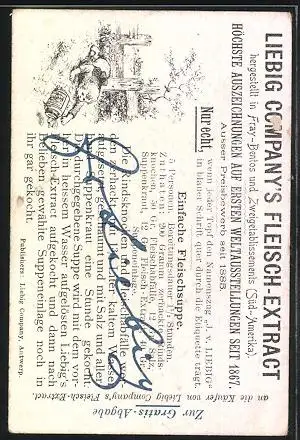 LIEBIG COMPANY'S FLEISCH-EXTRACT
hergestellt in Fray-Bentos und Zweigetablissements (Süd-Amerika).
HÖCHSTE AUSZEICHNUNGEN AUF ERSTEN WELTAUSSTELLUNGEN SEIT 1867.
Ausser Preisbewerb seit 1885.
Nur echt,
wenn jeder Topf den Namenszug „J. v. LIEBIG"
in blauer Schrift quer durch die Etiquette trägt.
Einfache Fleischsuppe.
5 Personen. Bereitungsdauer
Zuthaten: 200 Gramm
knochen, 30 Gr. Fleischabfälle,
Suppenkraut, 12 Gr. Liebig's Fleisch-
Extract, Suppeneinlage.
Die Rindsknochen und Fleischabfälle werden
kaltem Wasser
aufgesetzt, geschäumt und mit Salz und aller-
lei Suppenkraut eine Stunde gekocht.
Die durchgegebene Suppe wird mit dem vor-
her in heissem Wasser aufgelösten Liebig's
Fleisch-Extract aufgekocht und dann nach
Belieben gewählte Suppeneinlage noch in
ihr gar gekocht.
Publishers: Liebig Company, Antwerp.
Zur Gratis-Abgabe
an die Käufer von Liebig Company's Fleisch-Extract.